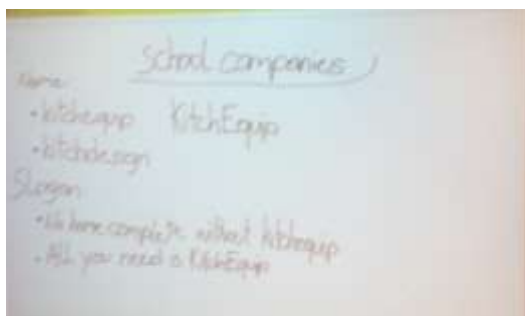 School companies
Name
• kitchequip KitchEquip
• kitchdesign
Slogan
• No home complete without kitchequip
• ALL you need is KitchEquip